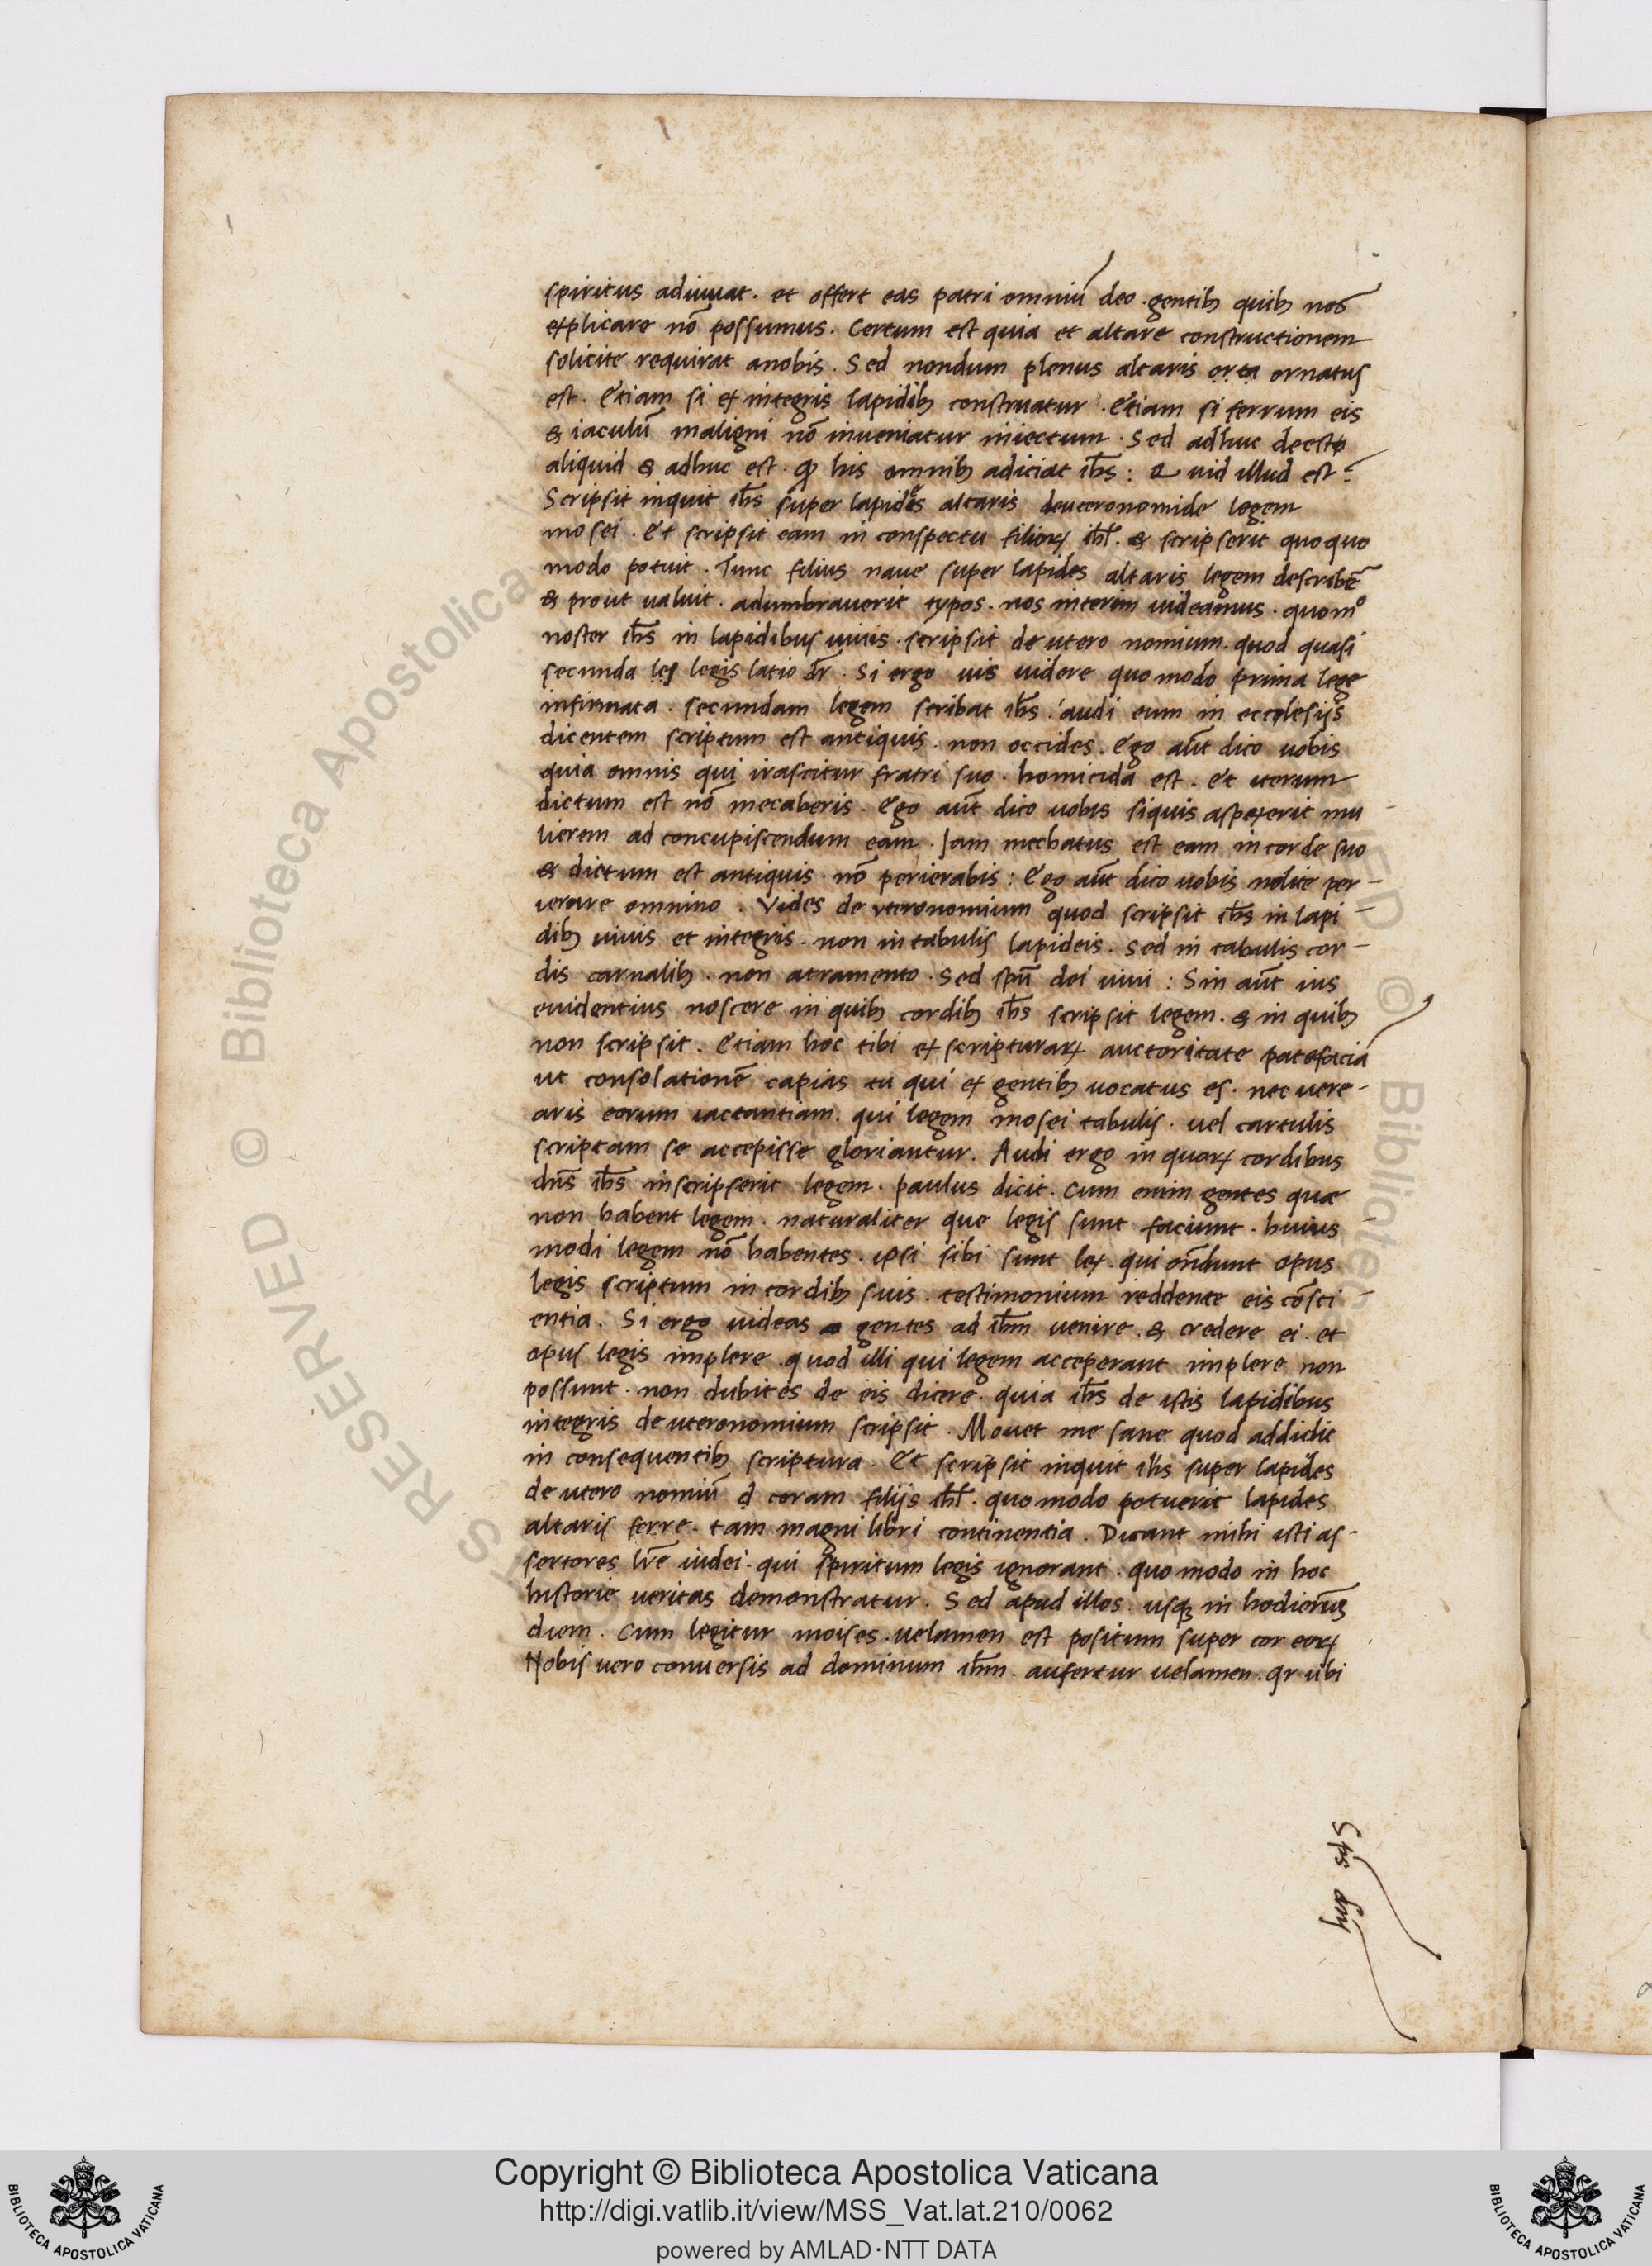 spiritus adiuuat. et offert eas patri omniū deo. gentib; quib; nos
explicare nō possumus. Certum est quia et altare constructionem
solicite requirat anobis. Sed nondum plenus altaris orta ornatus
est. Etiam si ex integris lapidib; construatur. Etiam si ferrum eis
& iaculū maligni nō inueniatur iniectum. Sed adhuc deest
aliquid & adhuc est. qđ his omnib; adiciat ih̄s: Quid illud est?
Scripsit inquit ih̄s super lapides altaris deuteronomide legem
mosei. Et scripsit eam in conspectu filioꝝ ih̄l. & scripserit quoquo
modo potuit. Tunc filius naue super lapides altaris legem describē
& prout ualuit. adumbrauerit typos. nos interim uideamus. quomº
noster ih̄s in lapidibus uiuis. scripsit deutero nomium. quod quasi
secunda leg legis latio dr̄. Si ergo uis uidere quomodo prima lege
infirmata. secundam legem scribat ih̄s. audi eum in ecclesijs
dicentem scriptum est antiquis. non occides. Ego aūt dico uobis
quia omnis qui irascitur fratri suo. homicida est. et iterum
dictum est nō mecaberis. Ego aūt dico uobis siquis aspexerit mu-
lierem ad concupiscendum eam. Iam mechatus est eam in corde suo
& dictum est antiquis. nō perierabis: Ego aūt dico uobis nolite per-
ierare omnino. Vides de uteronomium quod scripsit ih̄s in lapi-
dib; uiuis et integris. non in tabulis lapideis. sed in tabulis cor-
dis carnalib;. non atramento. sed spū dei uiui: Sin aūt uis
euidentius noscere in quib; cordib; ih̄s scripsit legem. & in quib;
non scripsit. Etiam hoc tibi ex scripturaꝝ auctoritate patefaciā
ut consolationē capias tu qui ex gentib; uocatus es. nec uere-
aris eorum iactantiam. qui legem mosei tabulis. uel cartulis
scriptam se accepisse gloriantur. Audi ergo in quoꝝ cordibus
dn̄s ih̄s inscripserit legem. paulus dicit. Cum enim gentes quæ
non habent legem. naturaliter que legis sunt faciunt. huius-
modi legem nō habentes. ipsi sibi sunt lex. qui on̄dunt opus
legis scriptum in cordib; suis. testimonium reddente eis cōsci-
entia. Si ergo uideas gentes ad ih̄m uenire. & credere ei. et
opus legis implere. quod illi qui legem acceperant implere non
possunt. non dubites de eis dicere. quia ih̄s de istis lapidibus
integris deuteronomium scripsit. Mouet me sane quod addidit
in consequentib; scriptura. Et scripsit inquit ih̄s super lapides
deutero nomiū đ coram filijs ih̄l. quomodo potuerit lapides
altaris ferre. tam magni libri continentia. Dicant mihi isti as-
sertores lr̄e iudei. qui spiritum legis ignorant. quomodo in hoc
historie ueritas demonstratur. Sed apud illos. usq; in hodiernū
diem. Cum legitur moises. uelamen est positum super cor eoꝝ
Nobis uero conuersis ad dominum ih̄m. aufertur uelamen. qr ubi
Copyright © Biblioteca Apostolica Vaticana
http://digi.vatlib.it/view/MSS_Vat.lat.210/0062
powered by AMLAD·NTT DATA
BIBLIOTECA APOSTOLICA VATICANA
BIBLIOTECA APOSTOLICA VATICANA